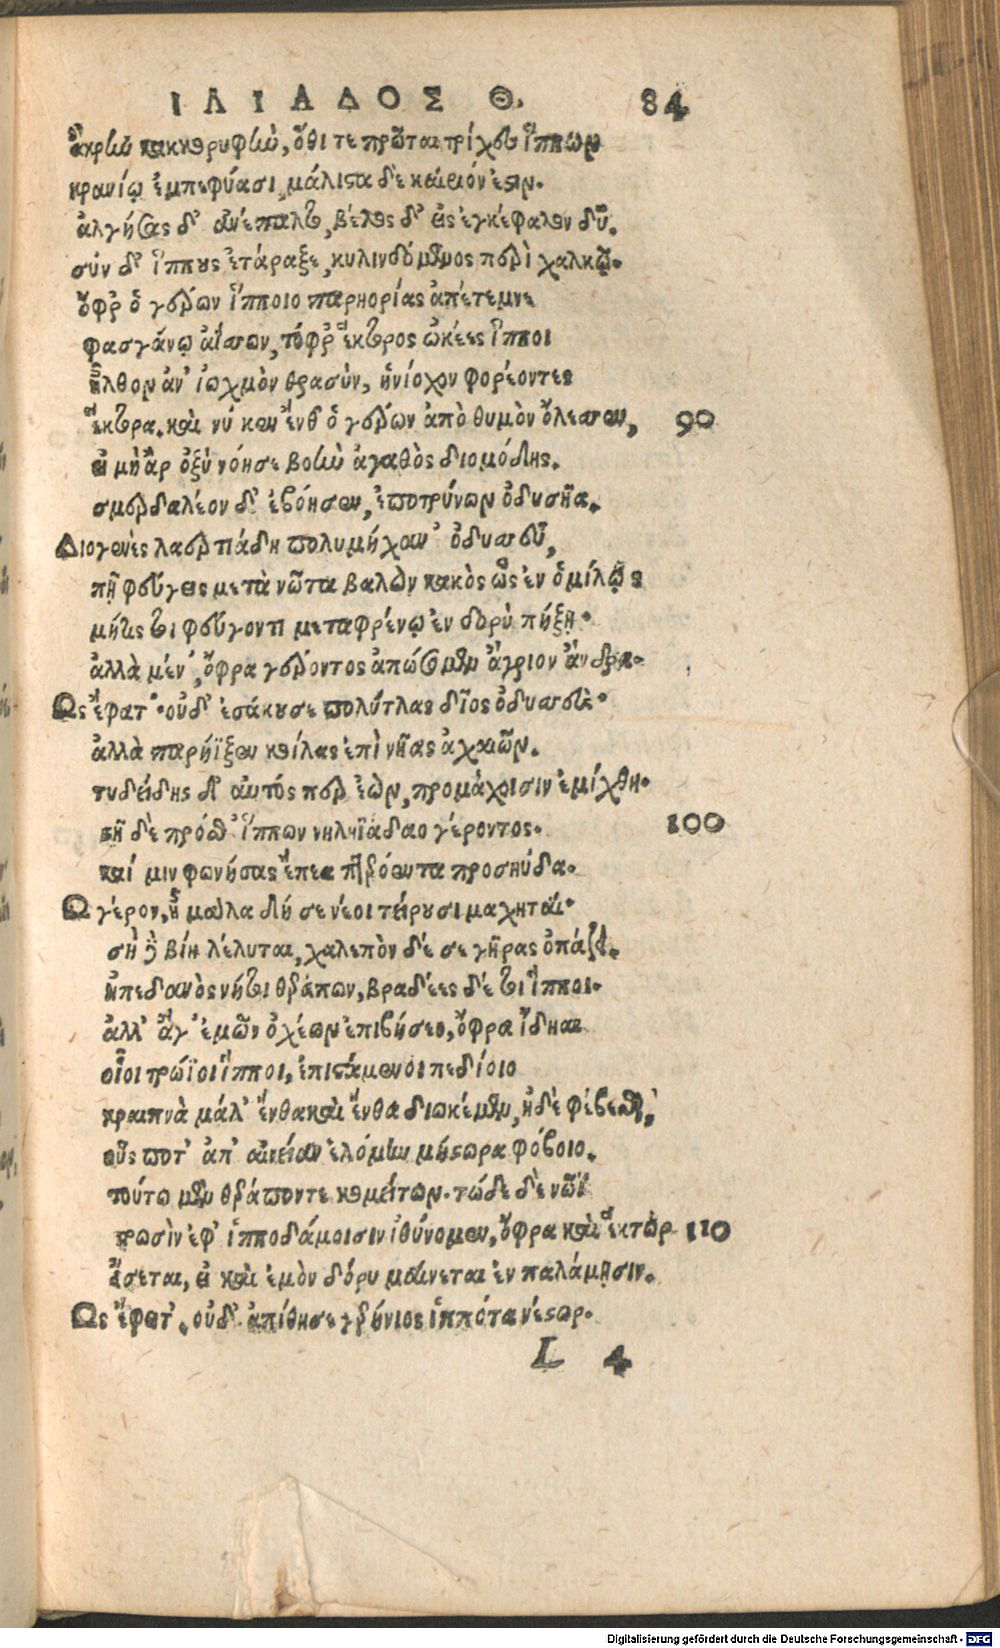 ΙΛΙΑΔΟΣ Θ. 84
ἄκρην κακκορυφὴν, ὅθι τε πρῶται τρίχες ἵππων
κρανίῳ ἐμπεφύασι, μάλιστα δὲ καίριόν ἐστιν.
ἀλγήσας δ' ἀνέπαλτο, βέλος δ' εἰς ἐγκέφαλον δῦ.
σύν δ' ἵππους ἐτάραξε, κυλινδόμενος περὶ χαλκῷ.
ὄφρ' ὁ γέρων ἵπποιο παρηορίας ἀπέτεμνε
φασγάνῳ ἀΐσσων, τόφρ' ἕκτορος ὠκέες ἵπποι
ἦλθον ἀν' ἰωχμὸν θρασὺν, ἡνίοχον φορέοντες
ἕκτορα. καὶ νύ κεν ἔνθ' ὁ γέρων ἀπὸ θυμὸν ὄλεσσεν, 90
εἰ μὴ ἄρ ὀξὺ νόησε βοὴν ἀγαθὸς διομήδης.
σμερδαλέον δ' ἐβόησεν, ἐποτρύνων ὀδυσῆα.
Διογενὲς λαερτιάδη πολυμήχαν' ὀδυσσεῦ,
πῇ φεύγεις μετὰ νῶτα βαλὼν κακὸς ὣς ἐν ὁμίλῳ;
μήτις τοι φεύγοντι μεταφρένῳ ἐν δορὺ πήξῃ.
ἀλλὰ μέν', ὄφρα γέροντος ἀπώσομεν ἄγριον ἄνδρα.
Ως ἔφατ'. οὐδ' ἐσάκουσε πολύτλας δῖος ὀδυσσεὺς.
ἀλλὰ παρήϊξεν κοίλας ἐπὶ νῆας ἀχαιῶν.
τυδείδης δ' αὐτός περ ἐὼν, προμάχοισιν ἐμίχθη.
στῆ δὲ πρόσθ' ἵππων νηληϊάδαο γέροντος. 100
καί μιν φωνήσας ἔπεα πτερόεντα προσηύδα.
Ω γέρον, ἦ μάλα δή σε νέοι τείρουσι μαχηταί.
σὴ δὲ βίη λέλυται, χαλεπὸν δέ σε γῆρας ὀπάζει.
ἠπεδανὸς νύ τοι θεράπων, βραδέες δέ τοι ἵπποι.
ἀλλ' ἄγ' ἐμῶν ὀχέων ἐπιβήσεο, ὄφρα ἴδηαι
οἷοι τρώϊοι ἵπποι, ἐπιστάμενοι πεδίοιο
κραιπνὰ μάλ' ἔνθα καὶ ἔνθα διωκέμεν, ἠδὲ φέβεσθαι,
οὕς ποτ' ἀπ' αἰνείαν ἑλόμην μήστωρα φόβοιο.
τούτω μὲν θεράποντε κομείτων. τώδε δὲ νῶϊ
τρωσὶν ἐφ' ἱπποδάμοισιν ἰθύνομεν, ὄφρα καὶ ἕκτωρ 110
εἴσεται, εἰ καὶ ἐμὸν δόρυ μαίνεται ἐν παλάμῃσιν.
Ως ἔφατ'. οὐδ' ἀπίθησε γερήνιος ἱππότα νέστωρ.
L 4
Digitalisierung gefördert durch die Deutsche Forschungsgemeinschaft - DFG